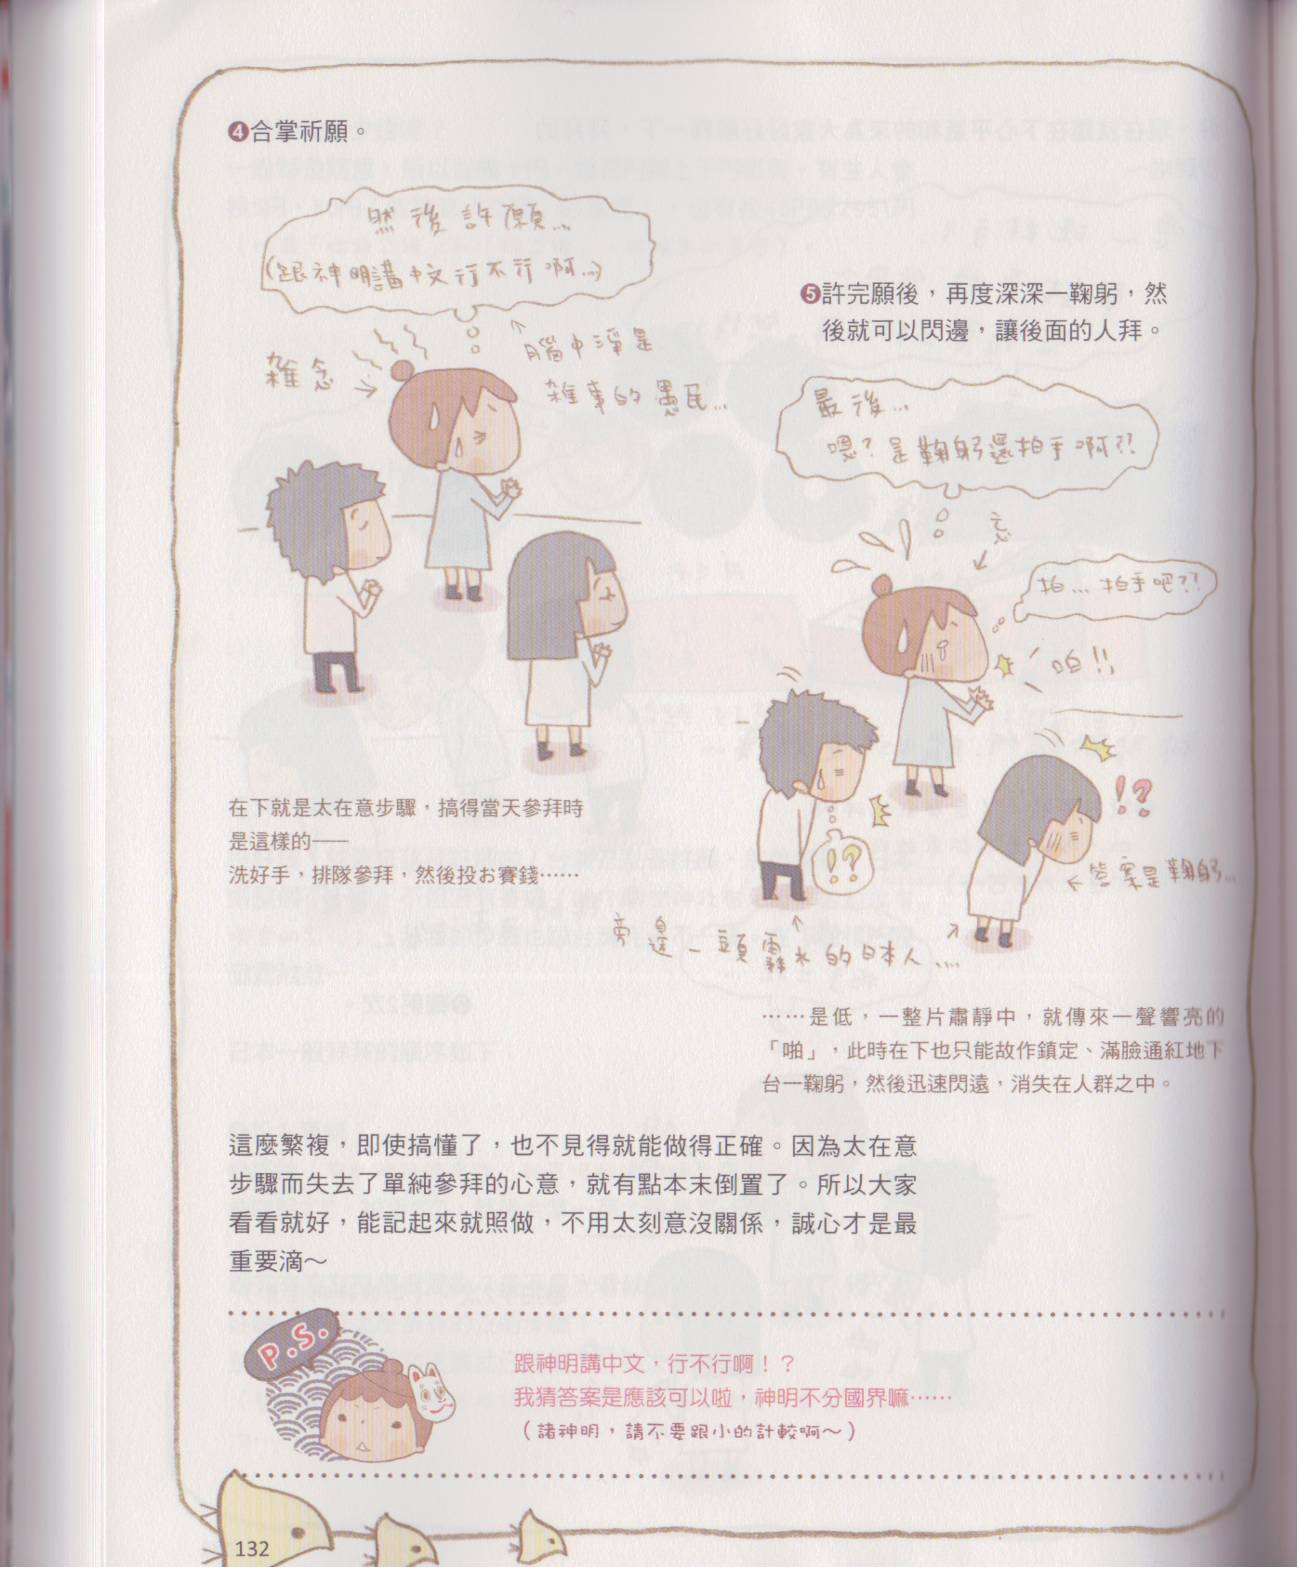 ❹合掌祈願。
然後許願…
(跟神明講中文行不行啊…)
雜念
腦中淨是
雜事的愚民…
❺許完願後，再度深深一鞠躬，然
後就可以閃邊，讓後面的人拜。
最後…
嗯？是鞠躬還拍手啊??
拍…拍手吧??
啪!!
!?
!?
←答案是鞠躬…
旁邊一頭霧水的日本人….
在下就是太在意步驟，搞得當天參拜時
是這樣的——
洗好手，排隊參拜，然後投お賽錢……
……是低，一整片肅靜中，就傳來一聲響亮的
「啪」，此時在下也只能故作鎮定、滿臉通紅地下
台一鞠躬，然後迅速閃遠，消失在人群之中。
這麼繁複，即使搞懂了，也不見得就能做得正確。因為太在意
步驟而失去了單純參拜的心意，就有點本末倒置了。所以大家
看看就好，能記起來就照做，不用太刻意沒關係，誠心才是最
重要滴～
P.S.
跟神明講中文，行不行啊！？
我猜答案是應該可以啦，神明不分國界嘛……
（諸神明，請不要跟小的計較啊～）
132